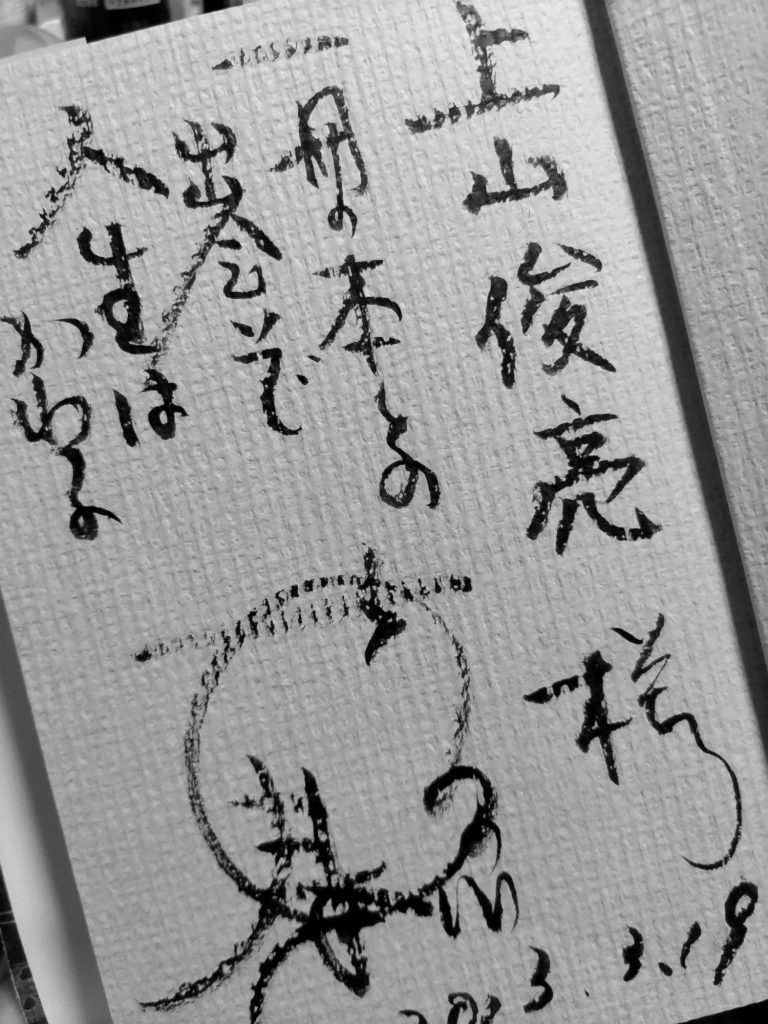 上山俊亮 様
一冊の本との
出会いで
人生は
かわる
2013.3.19